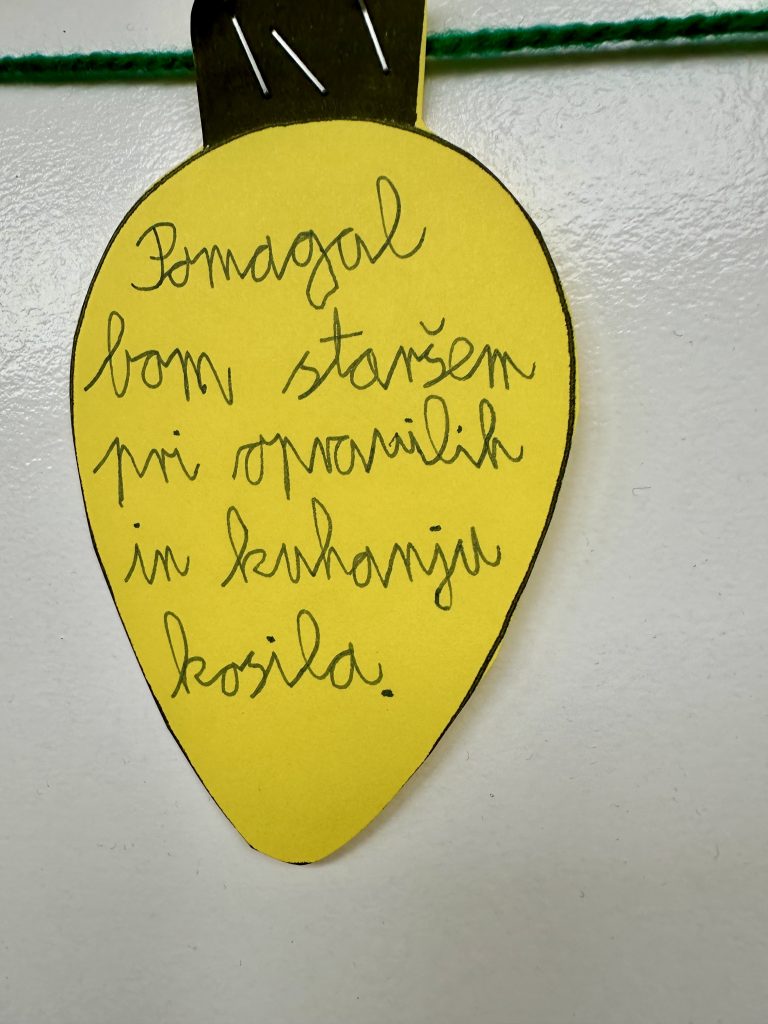 Pomagal
bom staršem
pri opravilih
in kuhanju
kosila.